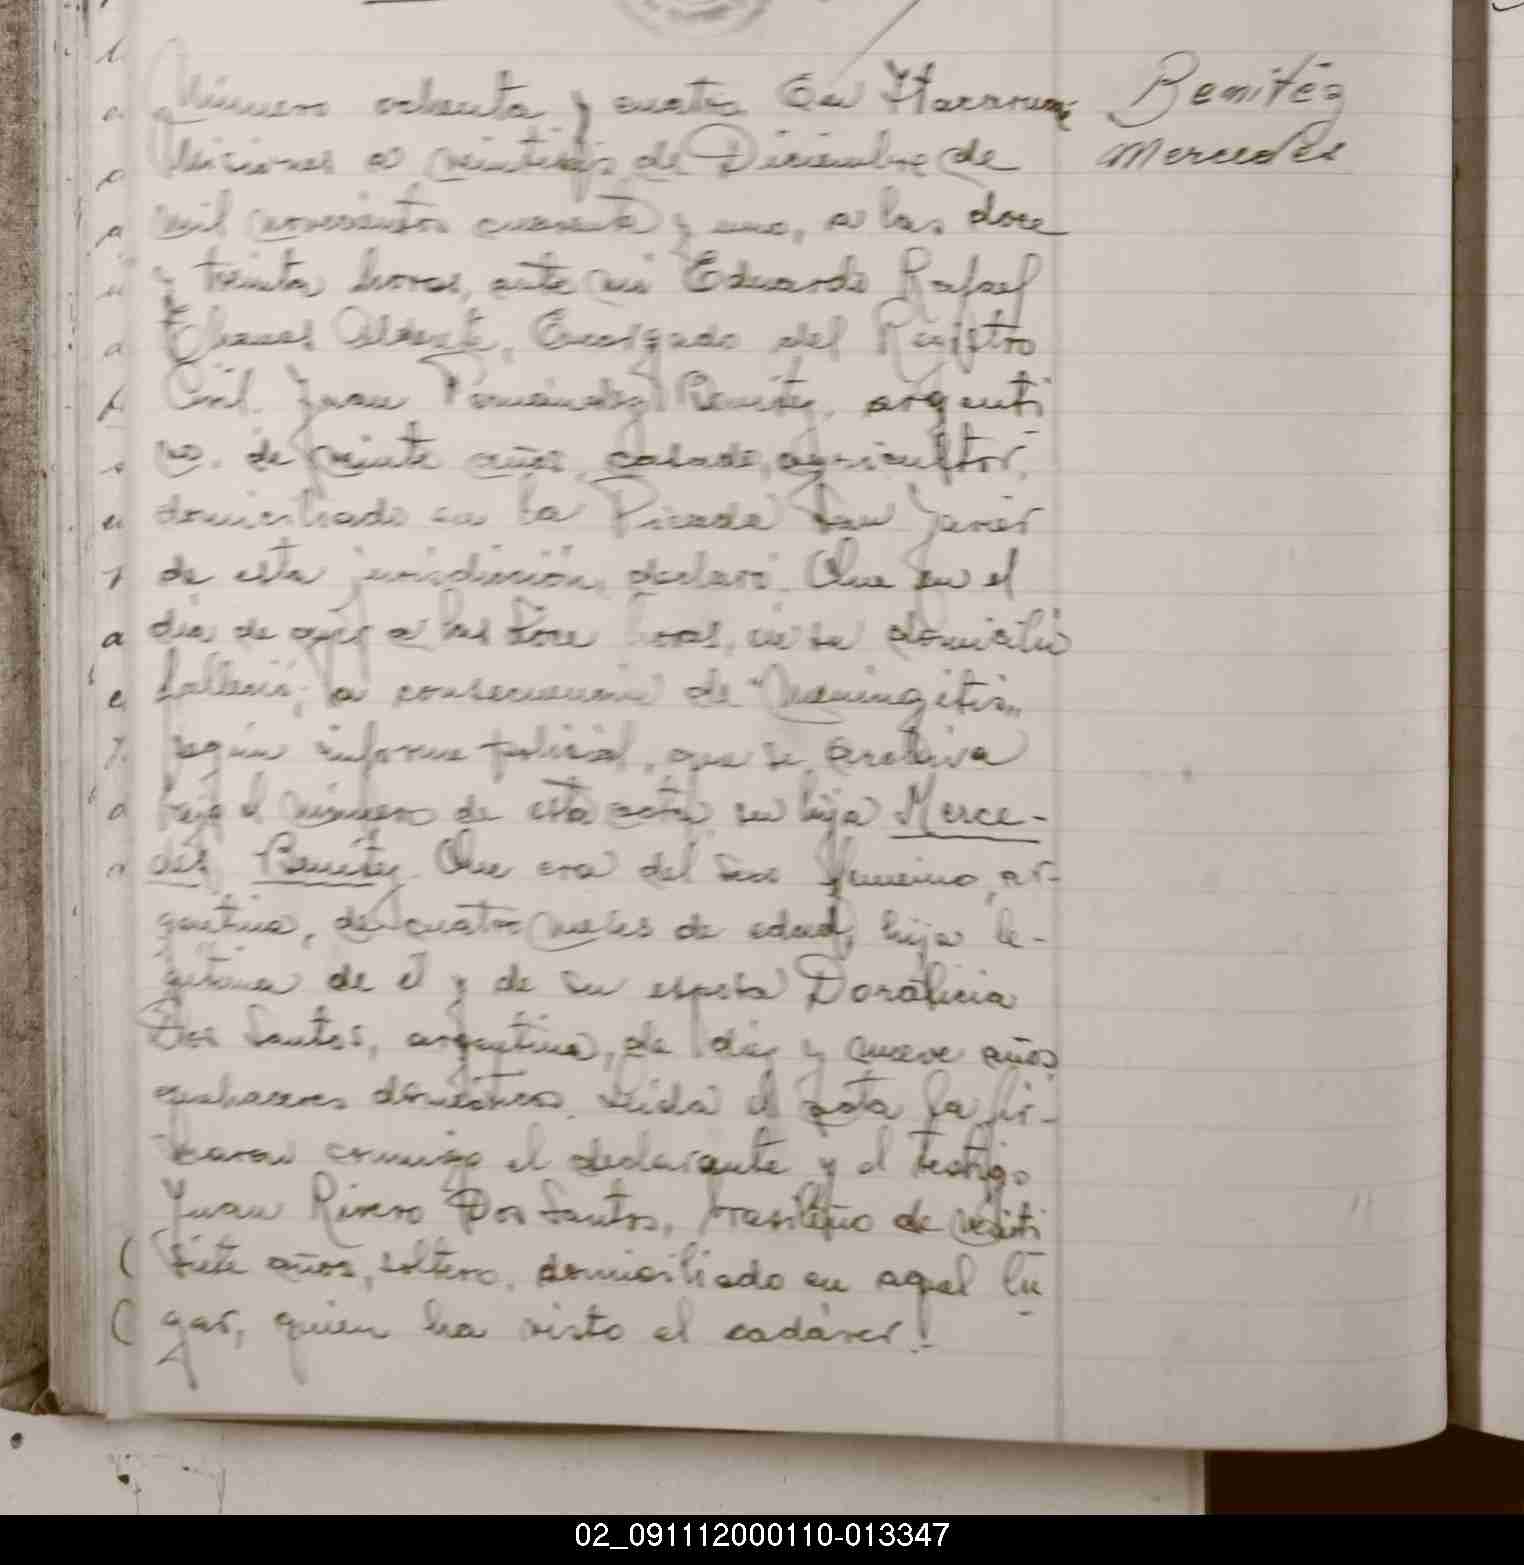 Número ochenta y cuatro En Itacaruaré
Misiones a veintiseis de Diciembre de
mil novecientos cuarenta y uno, a las doce
y treinta horas, ante mi Eduardo Rafael
Encargado del Registro
Civil. Juan Fernández Benitez, argenti
no, de veinte años, casado, agricultor,
domiciliado en la Picada San Javier
de esta jurisdicción, declaró: Que en el
día de ayer a las doce horas, en su domicilio
falleció, a consecuencia de "Meningitis"
según informe policial, que se archiva
bajo el número de esta acta, su hija Merce-
des Benitez. Que era del sexo femenino, ar-
gentina, de cuatro meses de edad, hija le-
gitima de él y de su esposa Doralicia
Dos Santos, argentina, de diez y nueve años,
quehaceres domésticos. Leida el acta la fir-
maron conmigo el declarante y el testigo
Juan Rivero Dos Santos, brasileño de veinti
siete años, soltero, domiciliado en aquel lu
gar, quien ha visto el cadáver.-
Benitez
Mercedes
02_091112000110-013347